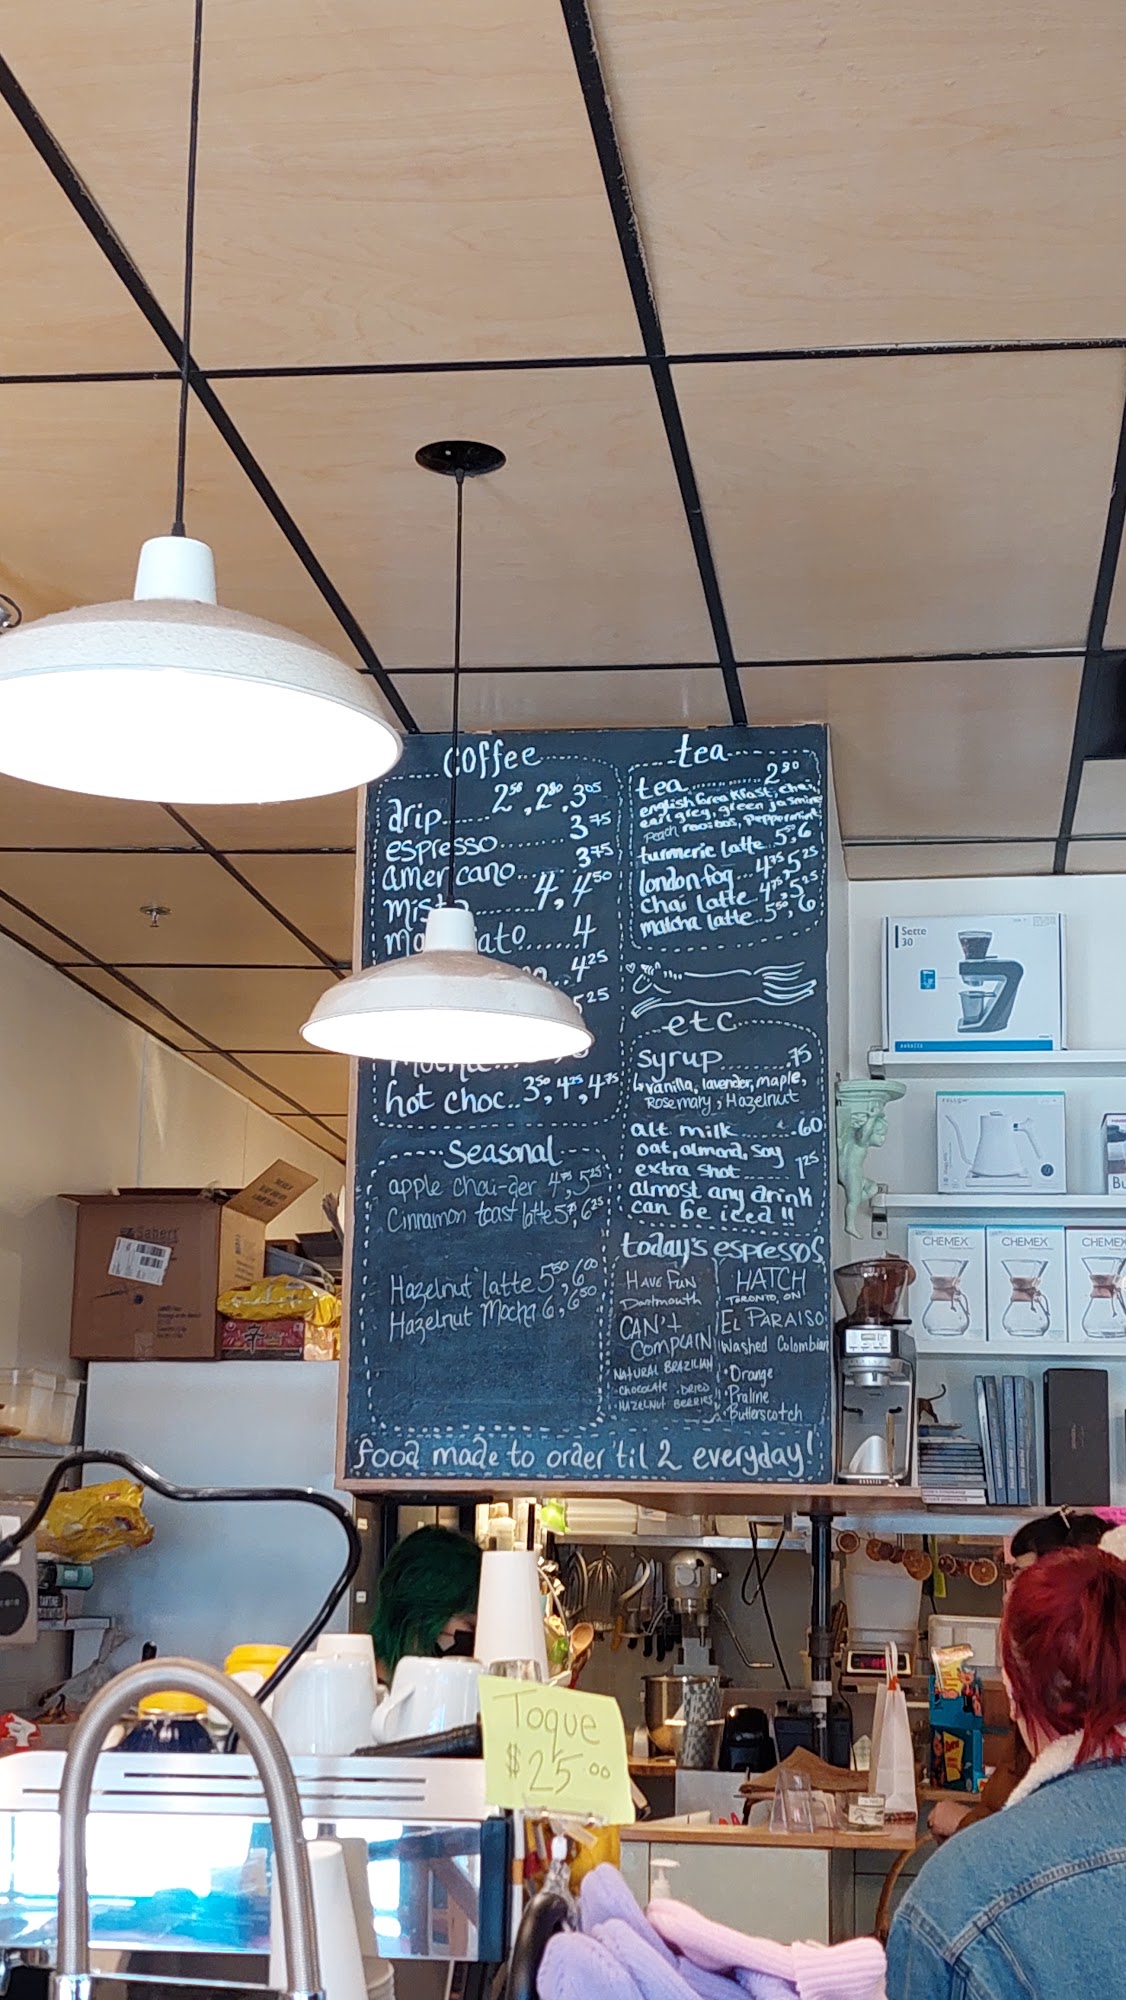 coffee
drip......2⁵⁰, 2⁸⁰, 3⁰⁵
espresso........3⁷⁵
americano....3⁷⁵
4, 4⁵⁰
4
4²⁵
²⁵
hot choc..3⁵⁰, 4²⁵, 4⁷⁵
Seasonal
apple chai-der 4⁷⁵, 5²⁵
Cinnamon toast latte 5⁷⁵, 6²⁵
Hazelnut latte 5⁵⁰, 6⁰⁰
Hazelnut Mocha 6, 6⁵⁰
tea
tea..........2⁸⁰
english breakfast, chai,
earl grey, green jasmine
Peach rooibos, peppermint
turmeric latte..5⁵⁰, 6
london fog...4⁷⁵, 5²⁵
chai latte 4⁷⁵, 5²⁵
matcha latte..5⁵⁰, 6
etc
syrup.........75
↳vanilla, lavender, maple,
Rosemary, Hazelnut
alt milk.......60
oat, almond, soy
extra shot....1²⁵
almost any drink
can be iced!!
today's espressos
Have Fun
Dartmouth
CAN't
COMPLAIN
NATURAL BRAZILIAN
CHOCOLATE DRIED
HAZELNUT BERRIES
HATCH
TORONTO, ON
EL PARAISO
Washed Colombian
·Orange
·Praline
·Butterscotch
food made to order 'til 2 everyday!
Sette
30
baratza
CHEMEX
CHEMEX
CHEMEX
Sabert
TARTINE
Toque
$25.00